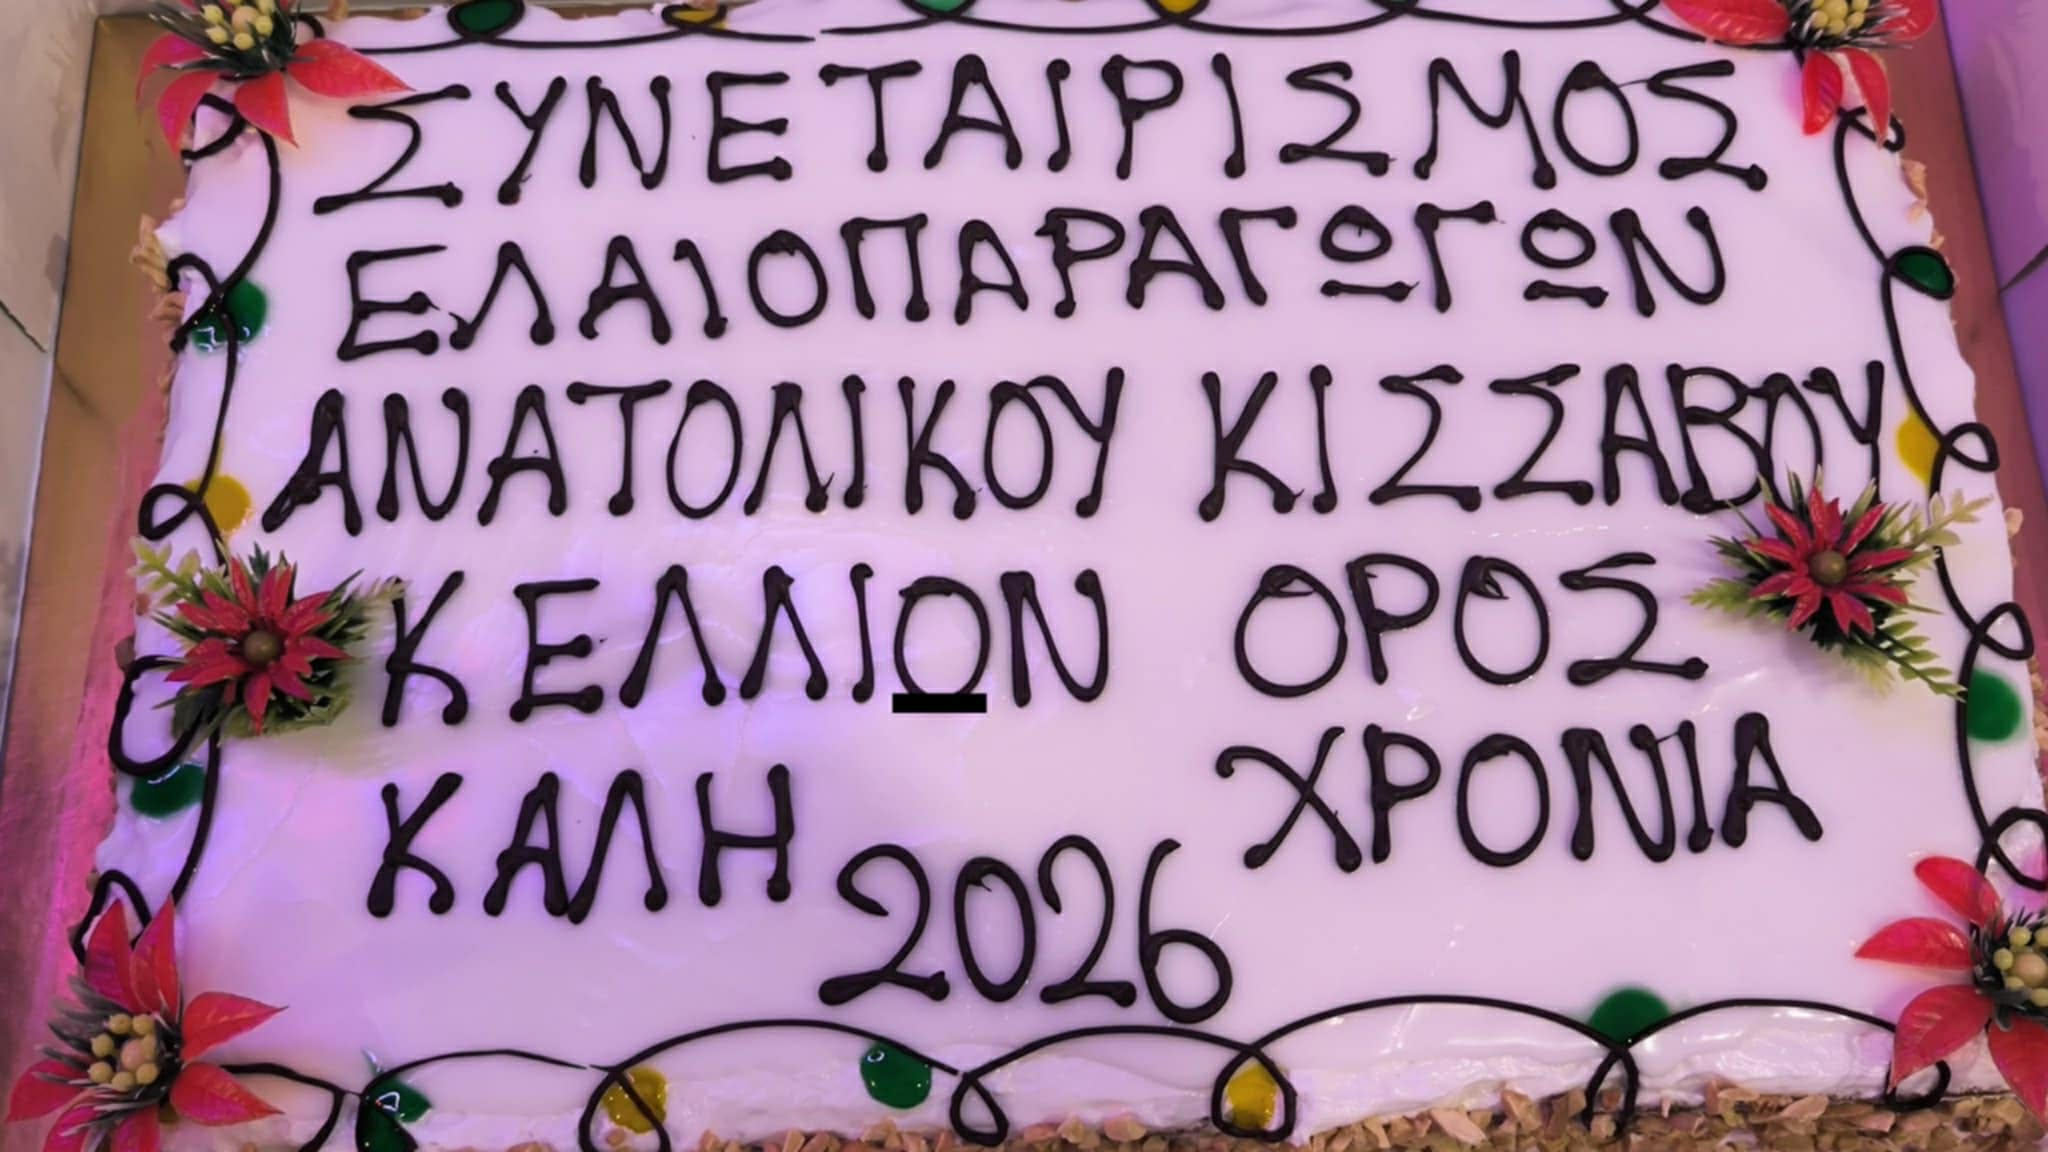 ΣΥΝΕΤΑΙΡΙΣΜΟΣ
ΕΛΑΙΟΠΑΡΑΓΩΓΩΝ
ΑΝΑΤΟΛΙΚΟΥ ΚΙΣΣΑΒΟΥ
ΚΕΛΛΙΩΝ ΟΡΟΣ
ΚΑΛΗ ΧΡΟΝΙΑ
2026